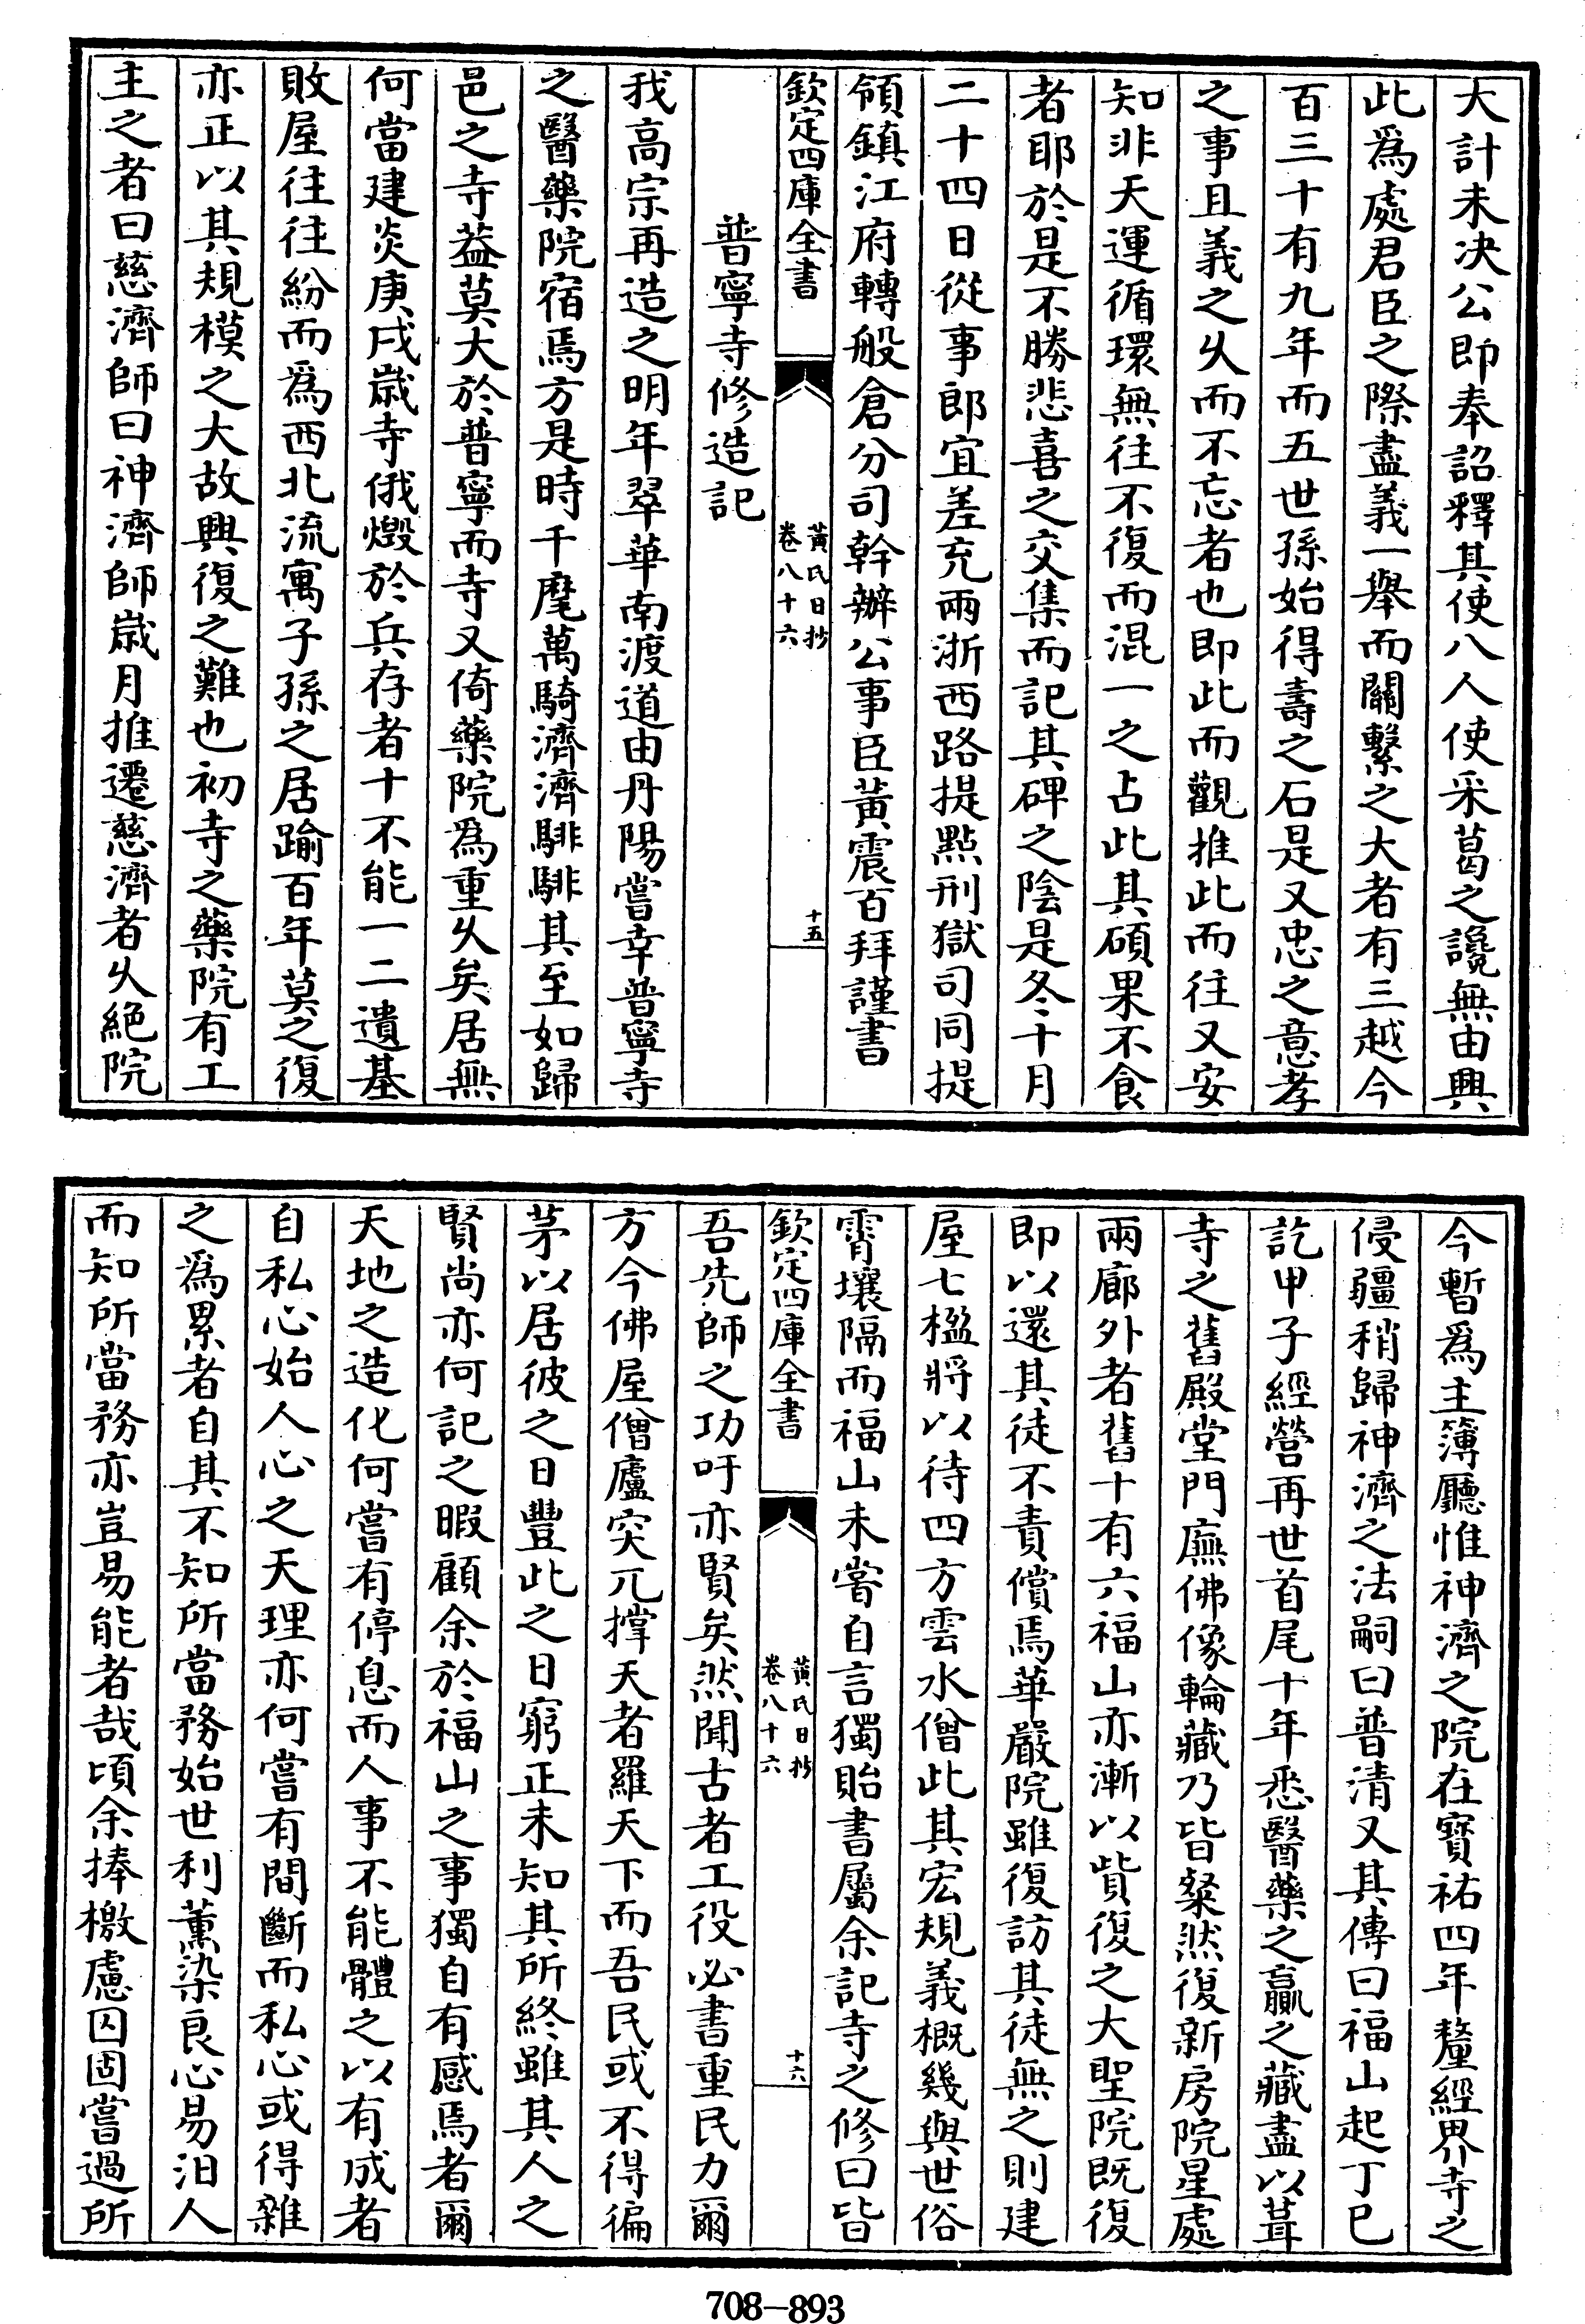 大計未决公即奉詔釋其使八人使采葛之讒無由興
此爲處君臣之際盡義一舉而關繫之大者有三越今
百三十有九年而五世孫始得壽之石是又忠之意孝
之事且義之乆而不忘者也即此而觀推此而往又安
知非天運循環無往不復而混一之占此其碩果不食
者耶於是不勝悲喜之交集而記其碑之陰是冬十月
二十四日從事郎宜差充兩浙西路提點刑獄司同提
領鎮江府轉般倉分司幹辦公事臣黃震百拜謹書
欽定四庫全書
黃氏日抄
卷八十六
十五
普寧寺修造記
我高宗再造之明年翠華南渡道由丹陽嘗幸普寧寺
之醫藥院宿焉方是時千麾萬騎濟濟騑騑其至如歸
邑之寺葢莫大於普寧而寺又倚藥院爲重乆矣居無
何當建炎庚戌歲寺俄燬於兵存者十不能一二遺基
敗屋往往紛而爲西北流寓子孫之居踰百年莫之復
亦正以其規模之大故興復之難也初寺之藥院有工
主之者曰慈濟師曰神濟師歲月推遷慈濟者乆絕院
今暫爲主簿廳惟神濟之院在寳祐四年釐經界寺之
侵疆稍歸神濟之法嗣曰普清又其傳曰福山起丁巳
訖甲子經營再世首尾十年悉醫藥之贏之藏盡以葺
寺之舊殿堂門廡佛像輪藏乃皆粲然復新房院星處
兩廊外者舊十有六福山亦漸以貲復之大聖院既復
即以還其徒不責償焉華嚴院雖復訪其徒無之則建
屋七楹將以待四方雲水僧此其宏規義概幾與世俗
霄壤隔而福山未嘗自言獨貽書屬余記寺之修曰皆
欽定四庫全書
黃氏日抄
卷八十六
十六
吾先師之功吁亦賢矣然聞古者工役必書重民力爾
方今佛屋僧廬突兀撑天者羅天下而吾民或不得徧
茅以居彼之日豐此之日窮正未知其所終雖其人之
賢尚亦何記之暇顧余於福山之事獨自有感焉者爾
天地之造化何嘗有停息而人事不能體之以有成者
自私心始人心之天理亦何嘗有間斷而私心或得雜
之爲累者自其不知所當務始世利薰染良心易汨人
而知所當務亦豈易能者哉頃余捧檄慮囚固嘗過所
708-893